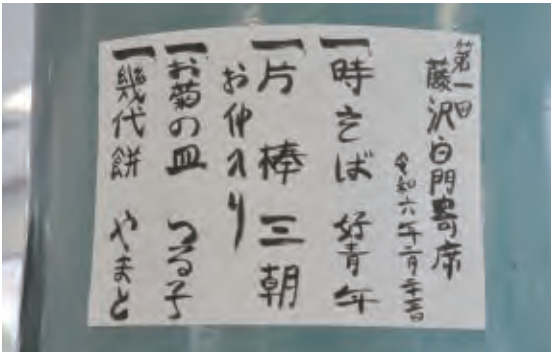 第一回
藤沢白門寄席
令和六年二月
一時そば 好青年
一片棒 三朝
お仲入り
一お菊の皿 つる子
一幾代餅 やまと